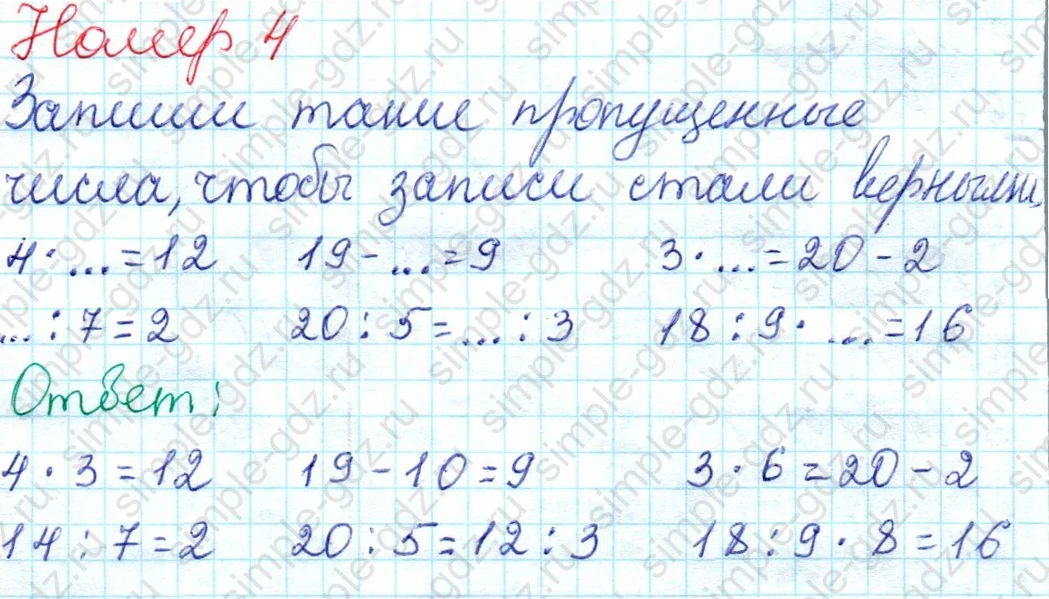 Номер 4
Запиши такие пропущенные
числа, чтобы записи стали верными.
4 · ... = 12 19 - ... = 9 3 · ... = 20 - 2
... : 7 = 2 20 : 5 = ... : 3 18 : 9 · ... = 16
Ответ:
4 · 3 = 12 19 - 10 = 9 3 · 6 = 20 - 2
14 : 7 = 2 20 : 5 = 12 : 3 18 : 9 · 8 = 16
simple-gdz.ru